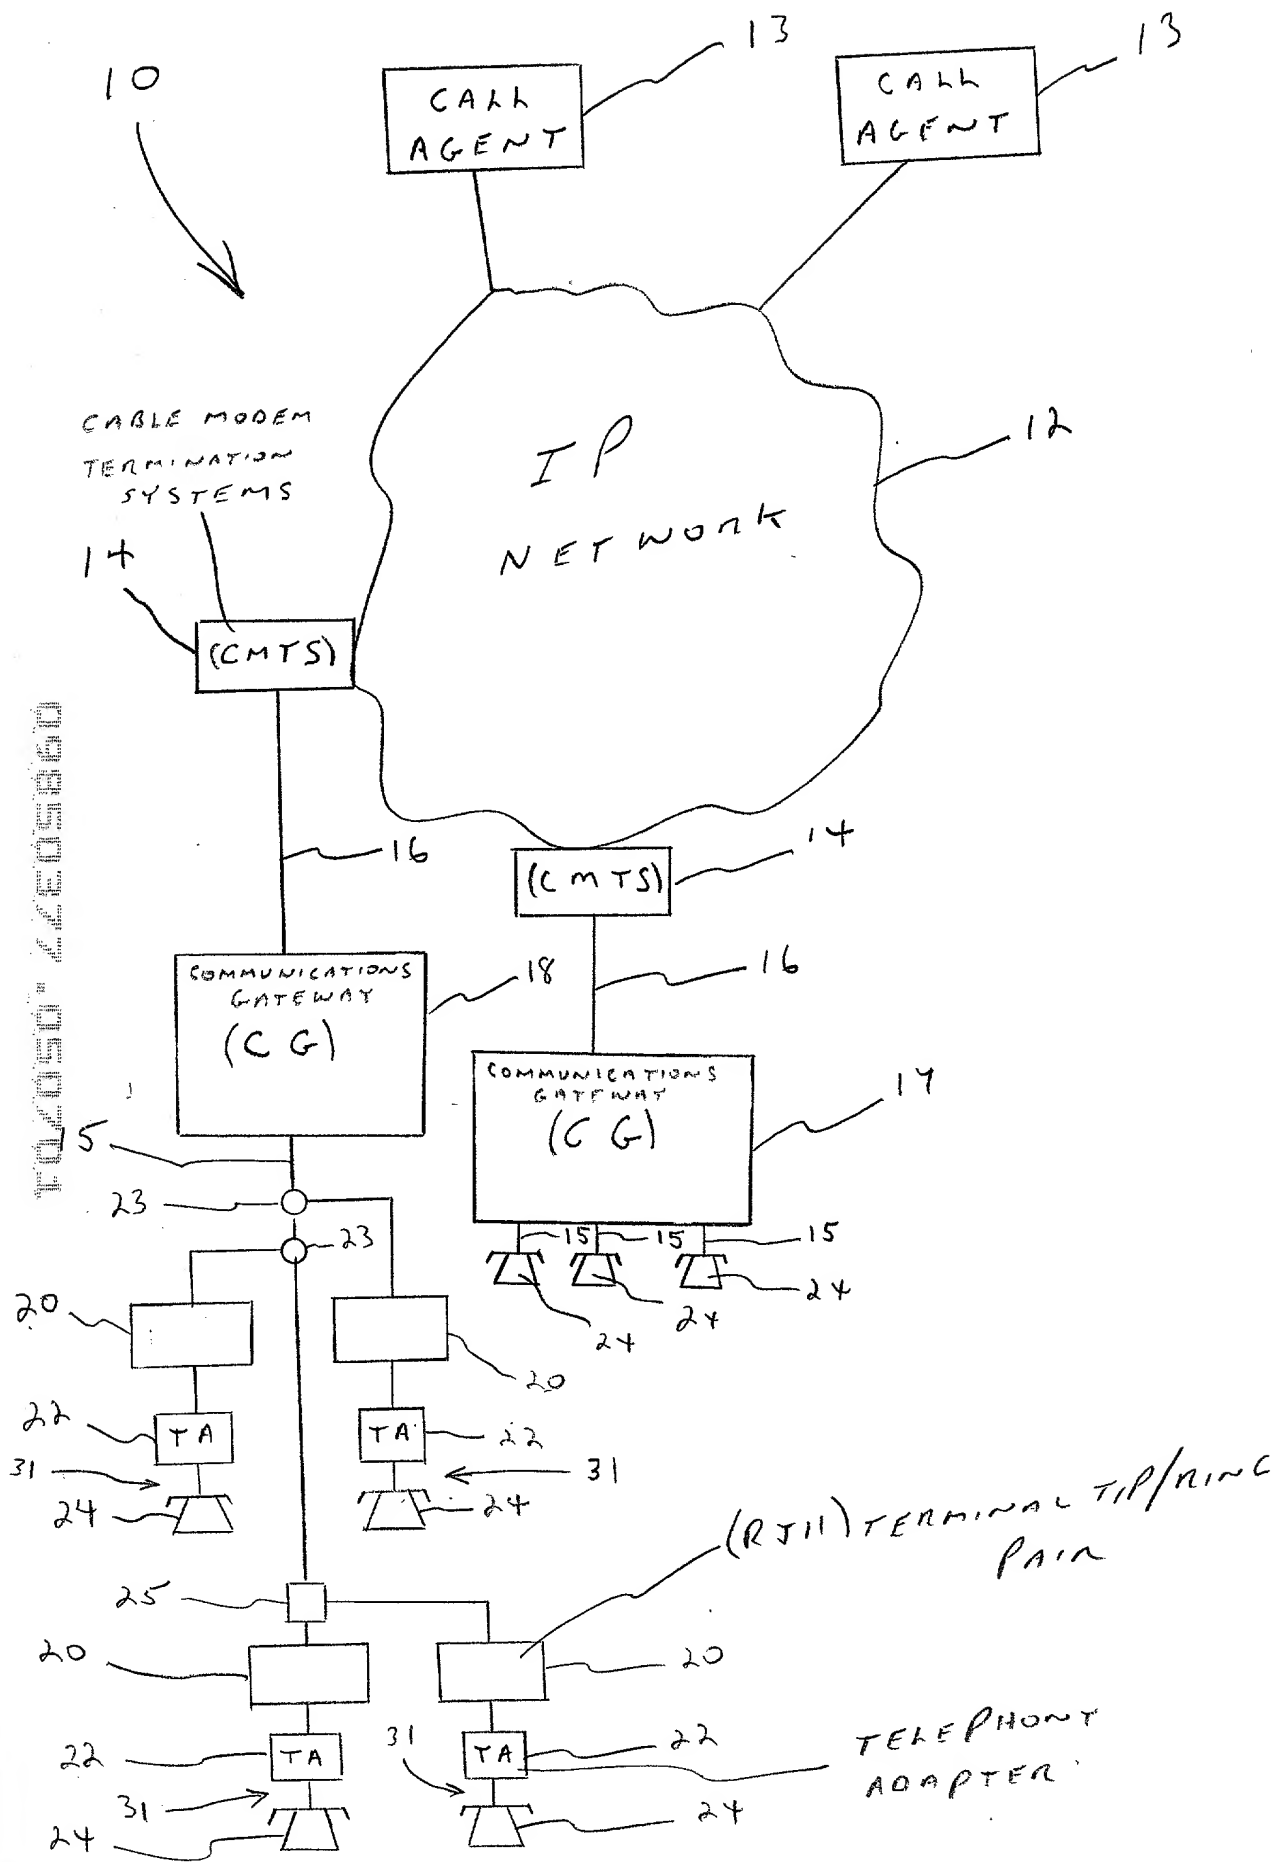 10
13
13
CALL
AGENT
CALL
AGENT
12
IP
NETWORK
CABLE MODEM
TERMINATION
SYSTEMS
14
(CMTS)
16
14
(CMTS)
16
COMMUNICATIONS
GATEWAY
(CG)
18
COMMUNICATIONS
GATEWAY
(CG)
17
09850377.050701
15
23
23
15
15
15
24
24
24
20
20
22
TA
TA
22
31
31
24
24
(RJ11) TERMINAL TIP/RING
PAIR
25
20
20
22
TA
31
TA
22
TELEPHONY
ADAPTER
31
24
24